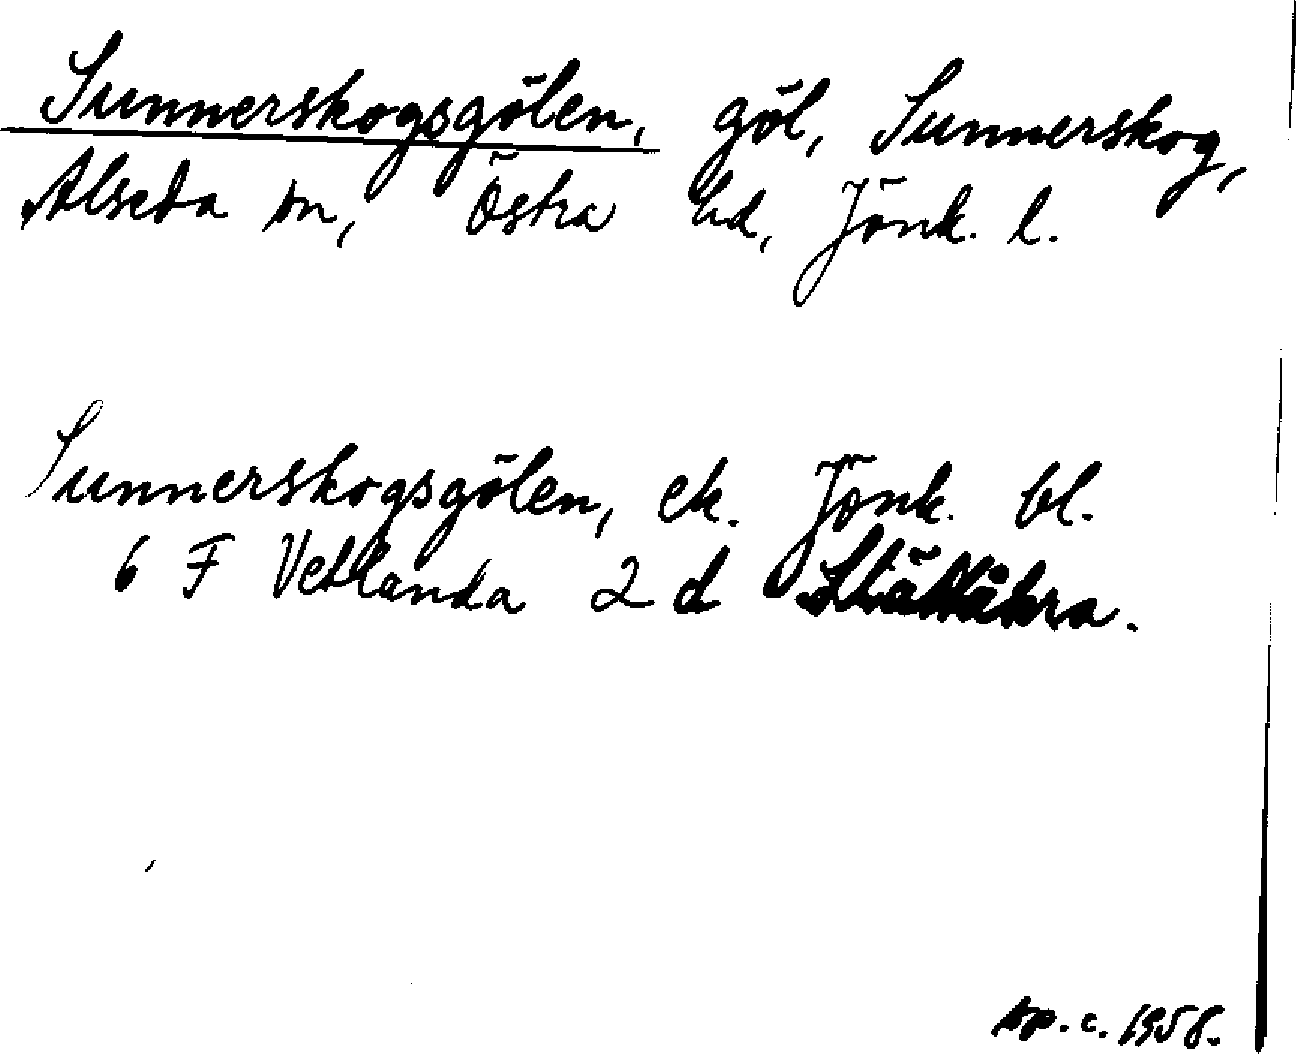 Sunnerskogsgölen, göl, Sunnerskog,
Alseda sn, Östra hd, Jönk. l.
Sunnerskogsgölen, ek. Jönk. bl.
6 F Vetlanda 2 d Slättåkra.
Ap. c. 1958.